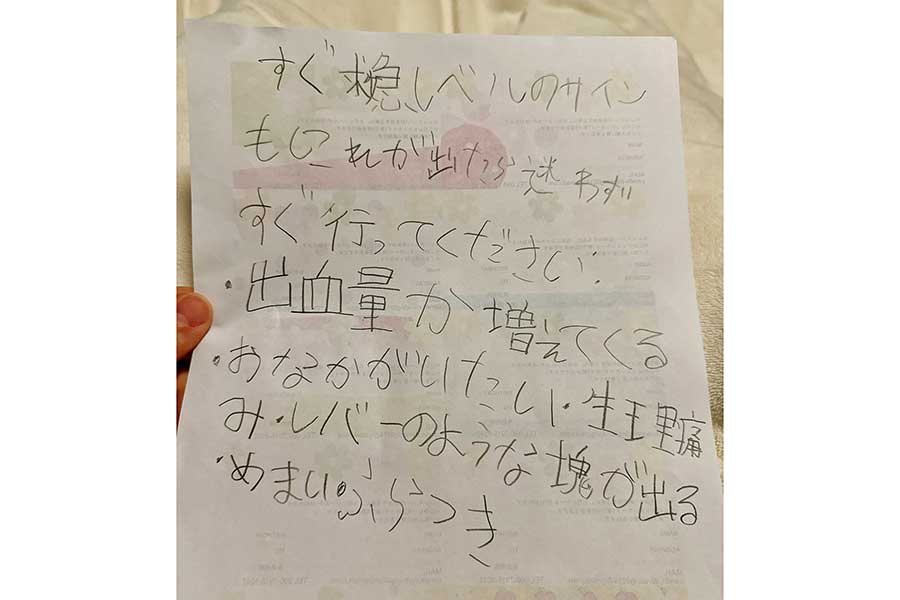 すぐ救急レベルのサイン
もしこれが出たら迷わず
すぐ行ってください.
・出血量か増えてくる
・おなかがいたい・生理痛
み・レバーのような塊が出る
・めまい。ふらつき